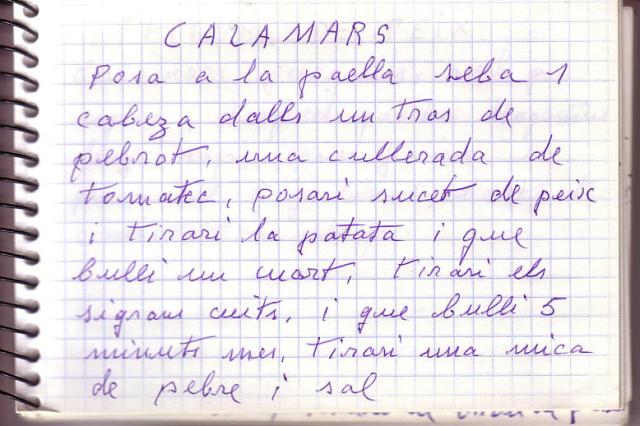 CALAMARS
Posa a la paella seba 1
cabeza dalls un tros de
pebrot, una cullerada de
tomatec, posari sucet de peix
i tirari la patata i que
bulli un cuart, tirari els
sigrans cuits, i que bulli 5
minuts mes, tirari una mica
de pebre i sal